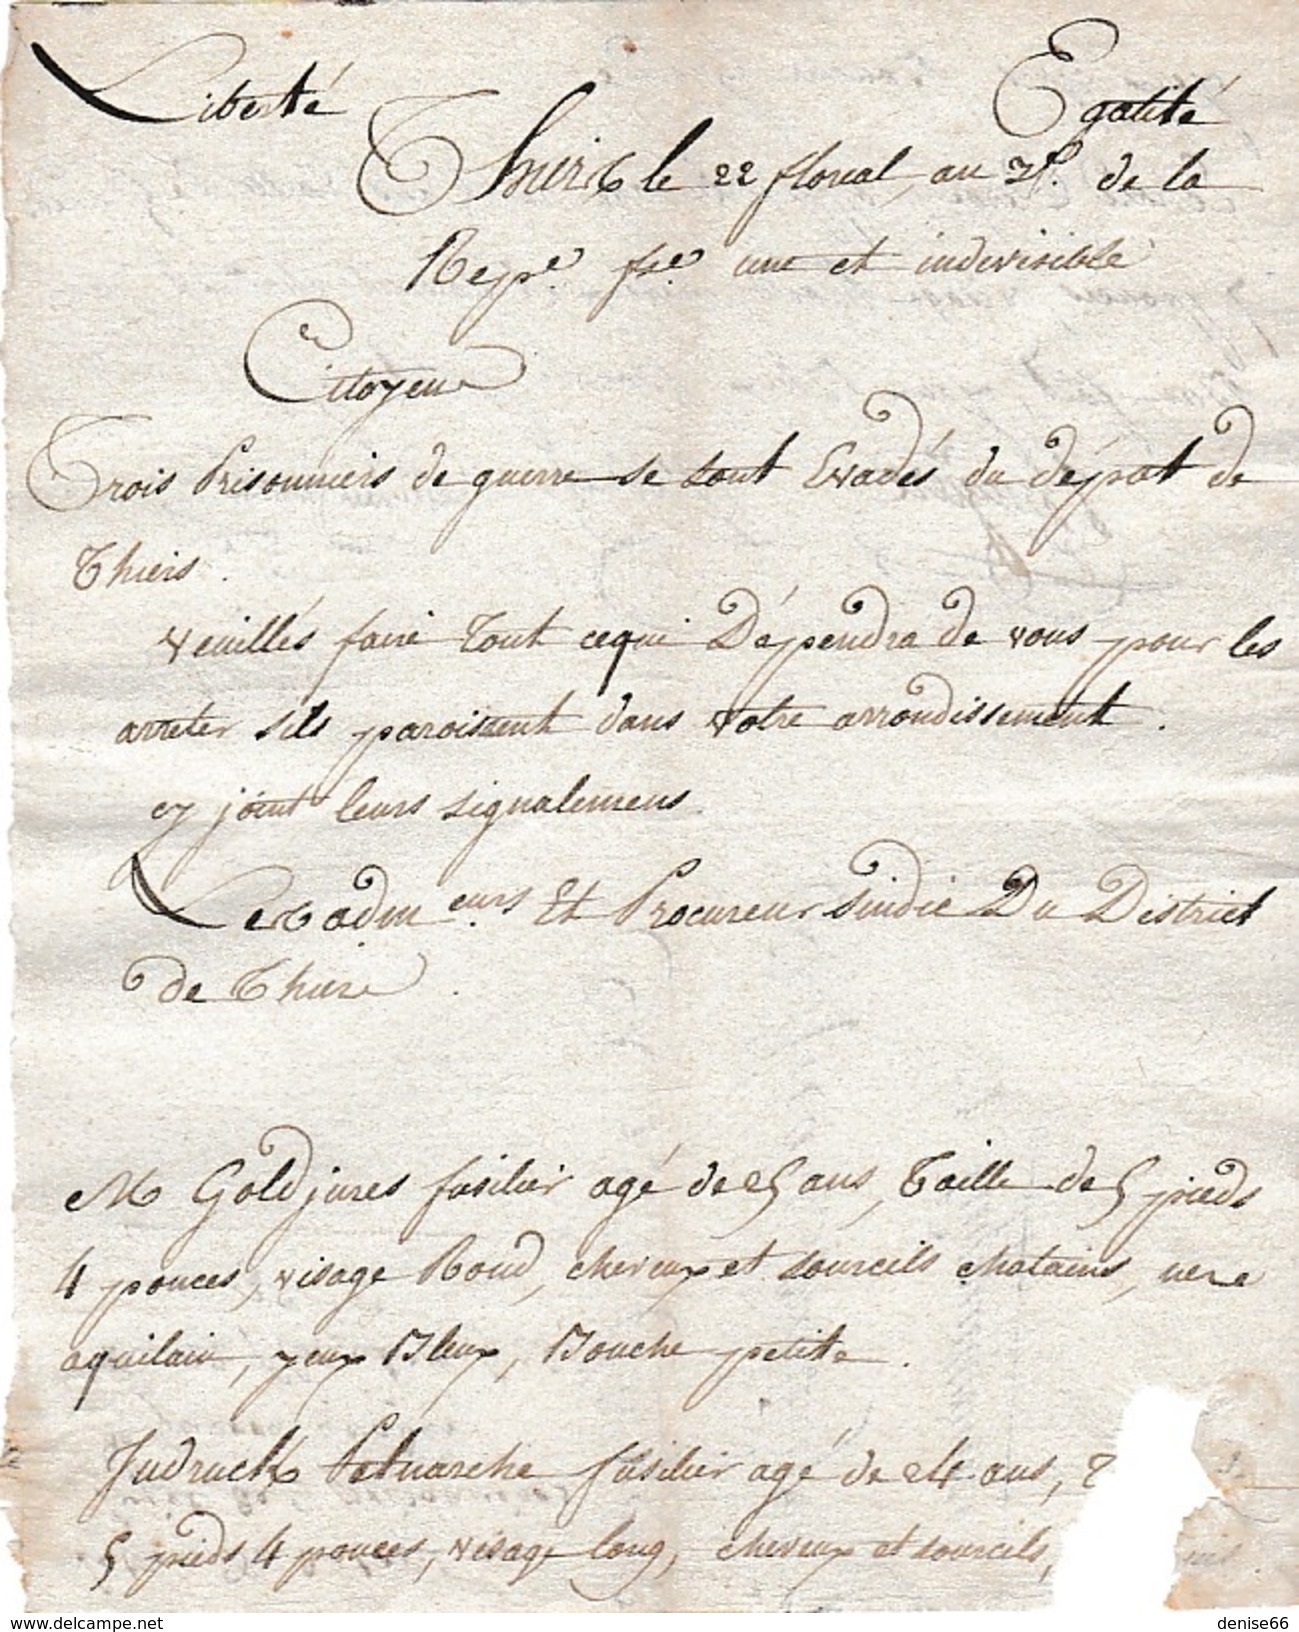 Liberté Egalité
Thiers le 22 floreal, an 3e. de la
Repe. fse. une et indevisible
Citoyens
Trois Prisonniers de guerre se sont Evadés du dépot de
Thiers.
veuillés faire Tout cequi Dépendra de vous pour les
arreter sils paroissent dans votre arrondissement.
cy joint leurs signalemens
Les adm eurs. Et Procureur Sindic Du District
de Thiers.
M Goldjures fusilier agé de 25 ans, Taille de 5 pieds
4 pouces, visage Rond, cheveux et sourcils chatains, nere
aquilain, yeux Bleux, Bouche petite.
Judruck fusilier agé de 24 ans, T
5 pieds 4 pouces, visage long, cheveux et sourcils,
www.delcampe.net denise66